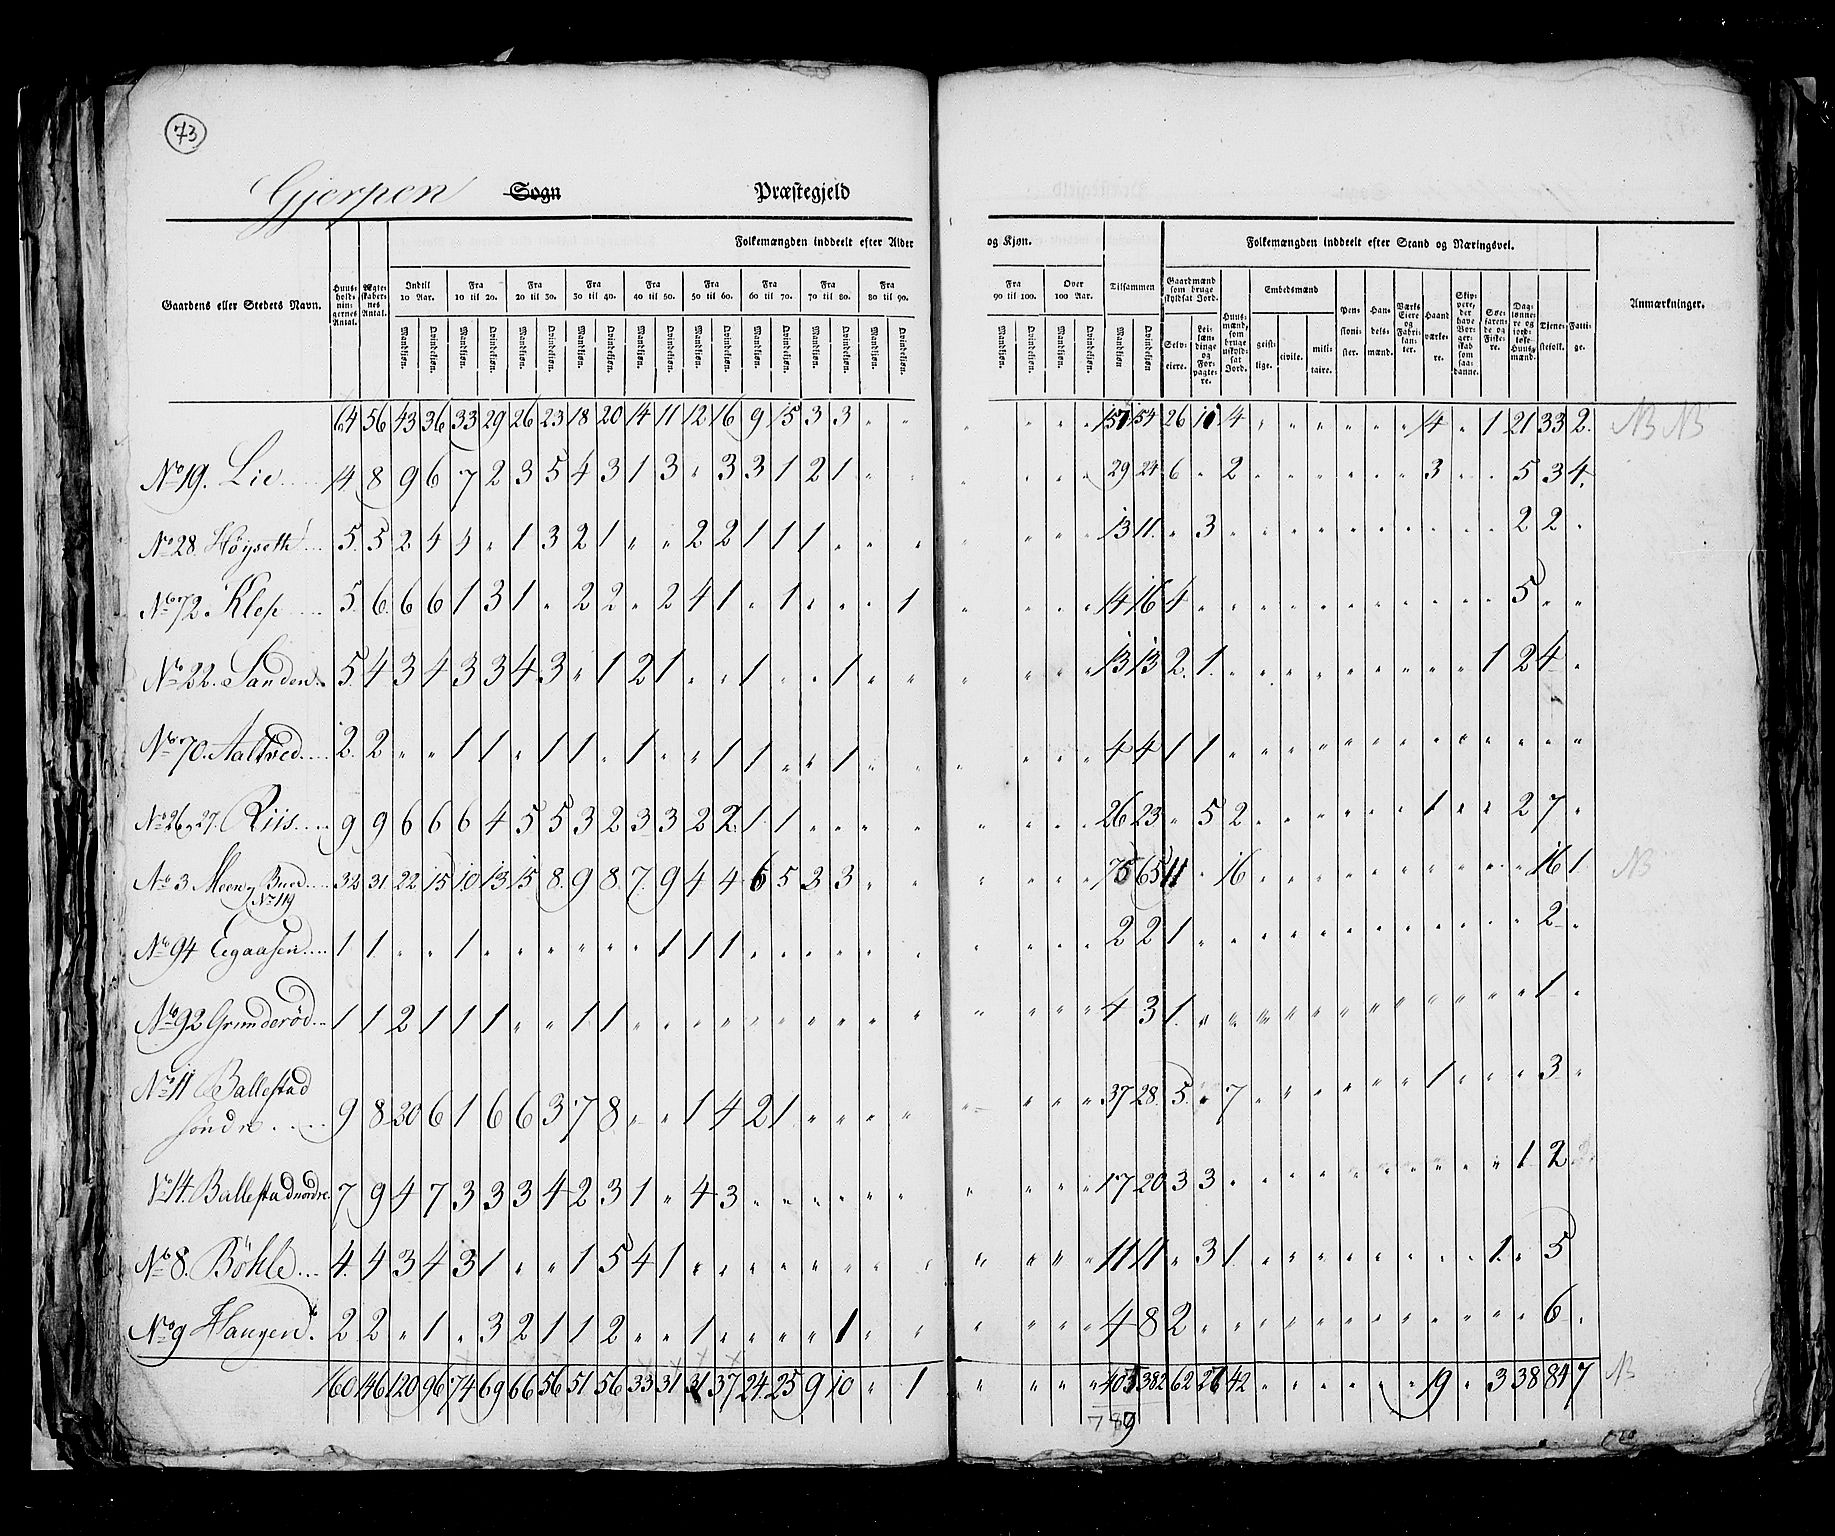 73
Gjerpen Sogn Præstegjeld
Folkemængden inddeelt efter Alder og Kjøn. Folkemængden inddeelt efter Stand og Næringsvei.
Gaardens eller Stedets Navn. Huusholdningernes Antal. Ægteskabernes Antal. Indtil 10 Aar. Fra 10 til 20. Fra 20 til 30. Fra 30 til 40. Fra 40 til 50. Fra 50 til 60. Fra 60 til 70. Fra 70 til 80. Fra 80 til 90. Fra 90 til 100. Over 100 Aar. Tilsammen Gaardmænd som bruge skyldsat Jord. Huusmænd, som bruge uskyldsat Jord. Embedsmænd Pensionister. Handelsmænd. Værks Eiere og Fabrikanter. Haandværkere. Skippere, der have Borgerskab som saadanne. Søefarende og Fiskere. Daglønnere og jordløse Huusmænd. Tjenestefolk. Fattige. Anmærkninger.
Mandkjøn. Qvindekjøn. Mandkjøn. Qvindekjøn. Mandkjøn. Qvindekjøn. Mandkjøn. Qvindekjøn. Mandkjøn. Qvindekjøn. Mandkjøn. Qvindekjøn. Mandkjøn. Qvindekjøn. Mandkjøn. Qvindekjøn. Mandkjøn. Qvindekjøn. Mandkjøn. Qvindekjøn. Mandkjøn. Qvindekjøn. Mandkjøn Qvindekjøn. Selveiere. Leilændinge og Forpagtere. geistlige. civile. militaire.
64 56 43 36 33 29 26 23 18 20 14 11 12 16 9 15 3 3 " " " " " " 157 154 26 4 " " " " " " 4 " 1 21 33 2. NB NB
No 19. Lie 14 8 9 6 7 2 3 5 4 3 1 3 " 3 3 1 2 1 " " " " " " 29 24 6 " 2 " " " " " " 3 " " 5 3 4.
No 28. Höyseth 5. 5 2 4 4 " 1 3 2 1 " " 2 2 1 1 1 " " " " " " " 13 11. " 3 " " " " " " " " " " 2 2 "
No 72. Klep 5. 6. 6 6 1 3 1 " 2 2 " 2 4 1 " 1 " " " 1 " " " " 14 16 4 " " " " " " " " " " " 5 " "
No 22. Sanden 5. 4 3 4 3 3 4 3 " 1 2 1 " " 1 " " 1 " " " " " " 13 13 2. 1. " " " " " " " " " 1 2 4 "
No 70. Aaltved 2. 2 " " 1 1 " 1 1 " 1 " " 1 1 " " 1 " " " " " " 4 4 1 1 " " " " " " " " " " " " "
No 26, 27. Riis 9 9 6 6 6 4 5 5 3 2 3 3 2 2. 1 1 " " " " " " " " 26 23 " 5 2 " " " " " " 1 " " 2 7 "
No 3 Meen, Bued No 119 32 31 22 15 10 13 15 8. 9 8. 7. 9 4 4 6 5 2 3 " " " " " " 75 65 11 " 16 " " " " " " " " " " 16 1 NB
No 94 Eegaasen 1 1 " " 1 " " " " " " 1 1 1 " " " " " " " " " " 2 2 1 " " " " " " " " " " " " 2 "
No 92 Grunderöd 1 1 2 1 1 1 " " 1 1 " " " " " " " " " " " " " " 4 3 1. " " " " " " " " " " " " 1 "
No 11 Ballestad
söndre 9 8 20 6 1 6 6 3 7 8 " " 1 4 2 1 " " " " " " " " 37 28. 5. " 7 " " " " " " 1 " " " 3 "
No 14. Ballestad nordre 7 9 4 7 3 3 3 4 2 3 1 " 4 3 " " " " " " " " " " 17 20 3 3 " " " " " " " " " " 1 2
No 8. Böhle 4. 4 3 4 3 1 " " 1 5 4 1 " " " " " " " " " " " " 11 11 " 3 1. " " " " " " " " 1. " 5
No 9 Haugen 2 2 " 1 " 3 2 1 1 2 " " 1 " " " " 1 " " " " " " 4 8 2 " " " " " " " " " " " " 6 "
160 146 120 96 74 69 66 56 51 56 33 31 31 37 24 25 9 10 " 1 " " " " 403 382 62 42 " " " " " " 9 " 3 38 84 7 NB
789